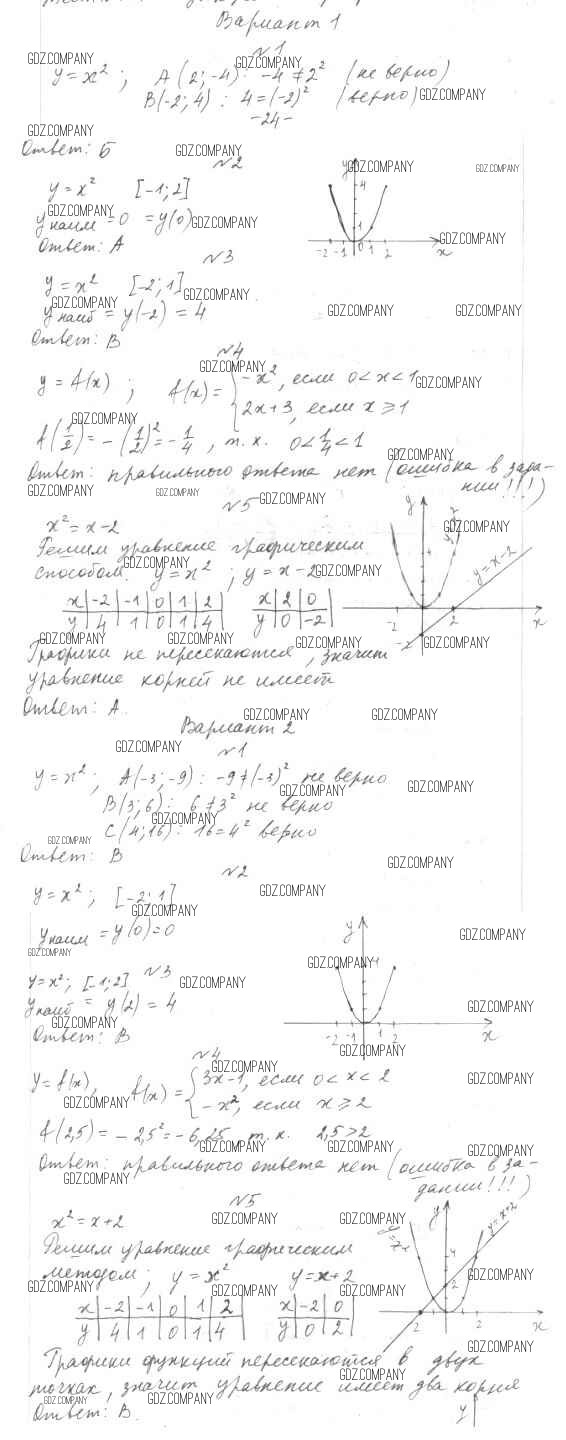 Вариант 1
N1
y = x² ; A(2; -4): -4 ≠ 2² (не верно)
B(-2; 4): 4 = (-2)² (верно)
-24-
Ответ: Б
N2
y = x² [-1; 2]
yнаим = 0 = y(0)
Ответ: А
N3
y = x² [-2; 1]
yнаиб = y(-2) = 4
Ответ: В
N4
y = f(x) ; f(x) = { -x², если 0 < x < 1
2x+3, если x ≥ 1
f(1/2) = -(1/2)² = -1/4, т.к. 0 < 1/4 < 1
Ответ: правильного ответа нет (ошибка в зада-
нии!!!)
N5
x² = x - 2
Решим уравнение графическим
способом. y = x² ; y = x - 2
x | -2 | -1 | 0 | 1 | 2 x | 2 | 0
y | 4 | 1 | 0 | 1 | 4 y | 0 | -2
Графики не пересекаются, значит
уравнение корней не имеет
Ответ: А.
Вариант 2
N1
y = x² ; A(-3; -9): -9 ≠ (-3)² не верно
B(3; 6): 6 ≠ 3² не верно
C(4; 16): 16 = 4² верно
Ответ: В
N2
y = x² ; [-2; 1]
yнаим = y(0) = 0
N3
y = x²; [-1; 2]
yнаиб = y(2) = 4
Ответ: В
N4
y = f(x), f(x) = { 3x-1, если 0 < x < 2
-x², если x ≥ 2
f(2,5) = -2,5² = -6,25 т.к. 2,5 > 2
Ответ: правильного ответа нет (ошибка в за-
дании!!!)
N5
x² = x + 2
Решим уравнение графическим
методом; y = x² y = x + 2
x | -2 | -1 | 0 | 1 | 2 x | -2 | 0
y | 4 | 1 | 0 | 1 | 4 y | 0 | 2
Графики функций пересекаются в двух
точках, значит уравнение имеет два корня
Ответ: В.
y
GDZ.COMPANY